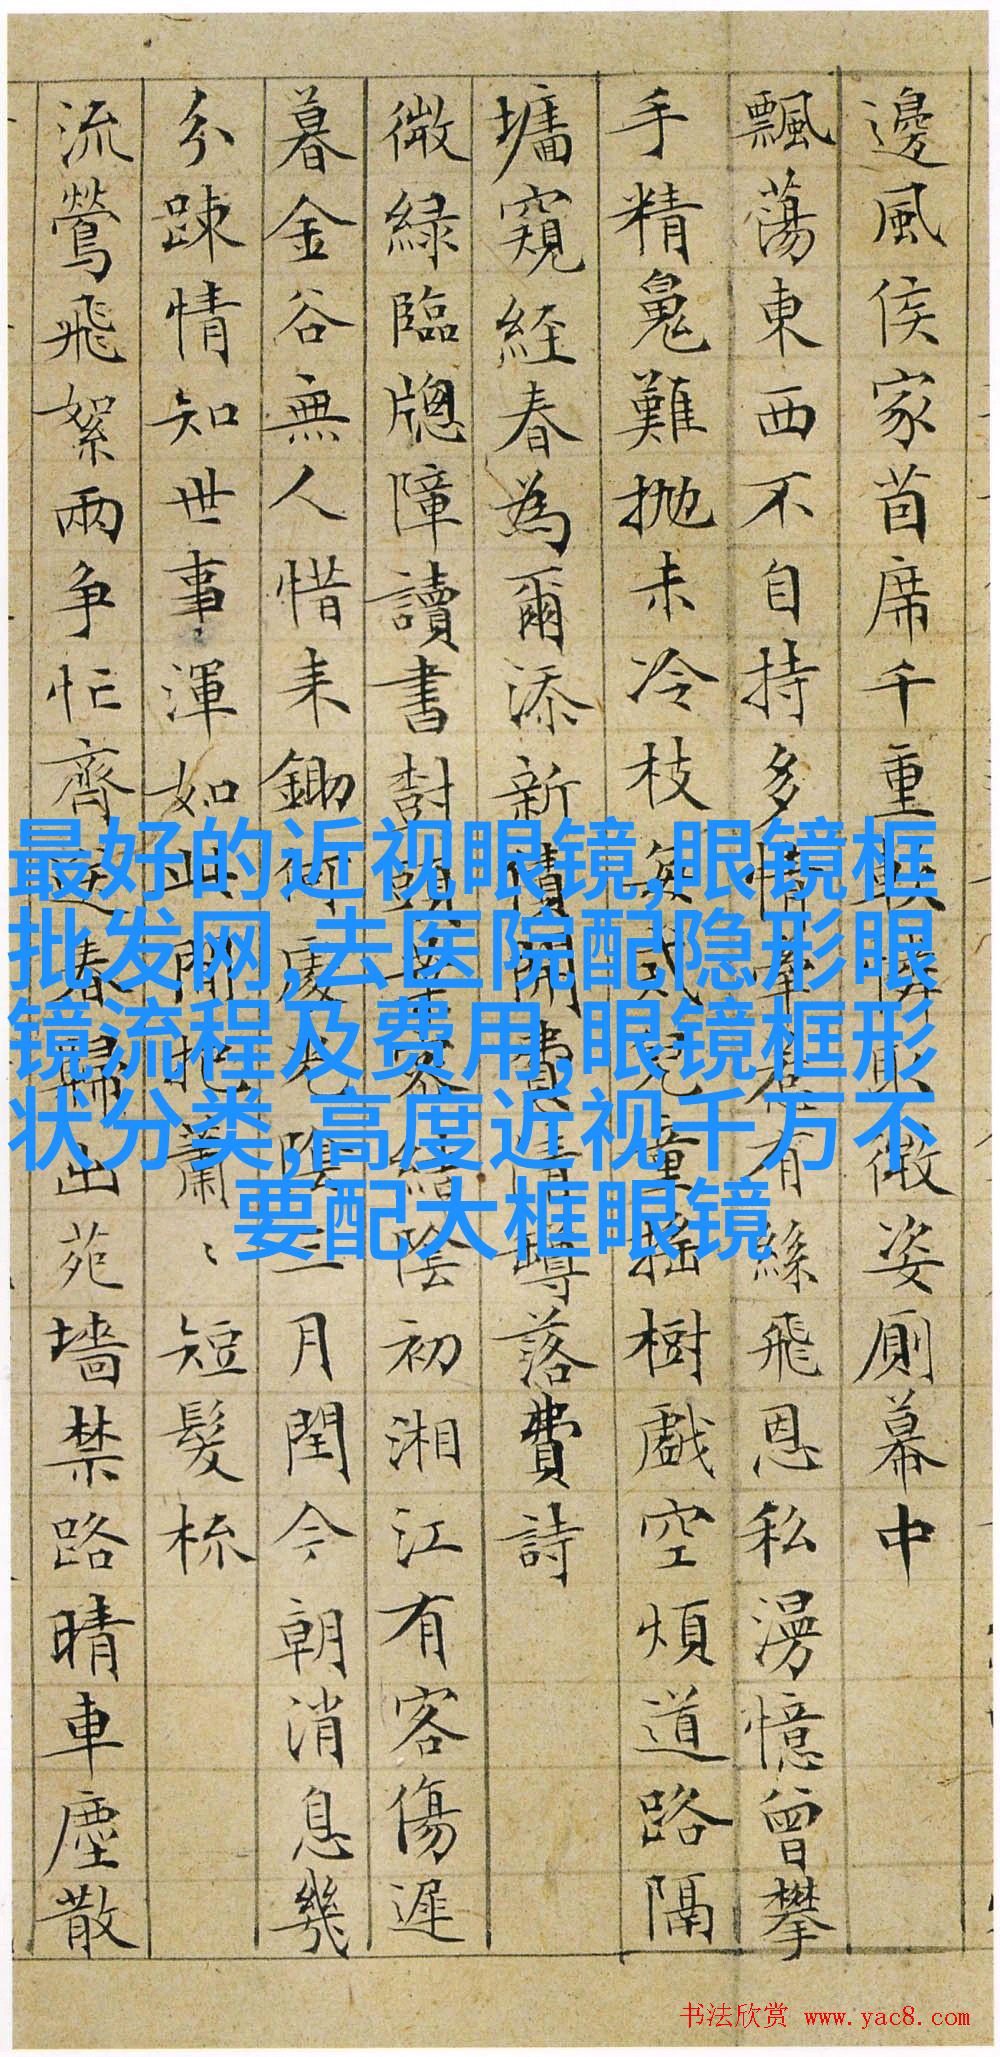 邊風侯家茵席千重
微姿厕幕中
飄蕩東西不自持多情牽
有絲飛恩私漫憶曾攀
手精魂難抛未冷枝
兒童摇樹戲空煩道路隔
墻窺経春為爾添新債開
費情
落費詩
微緑臨牕障讀書
頭
結陰初湘江有客傷遲
暮金谷無人惜来鋤何處
三月閏今朝消息幾
分踈情知世事渾如此
閒
蕭、短髮梳
流鶯飛絮兩争忙齊
春歸出苑墻禁路晴車塵散
最好的近视眼镜,眼镜框
批发网,去医院配隐形眼
镜流程及费用,眼镜框形
状分类,高度近视千万不
要配大框眼镜
书法欣赏 www.yac8.com